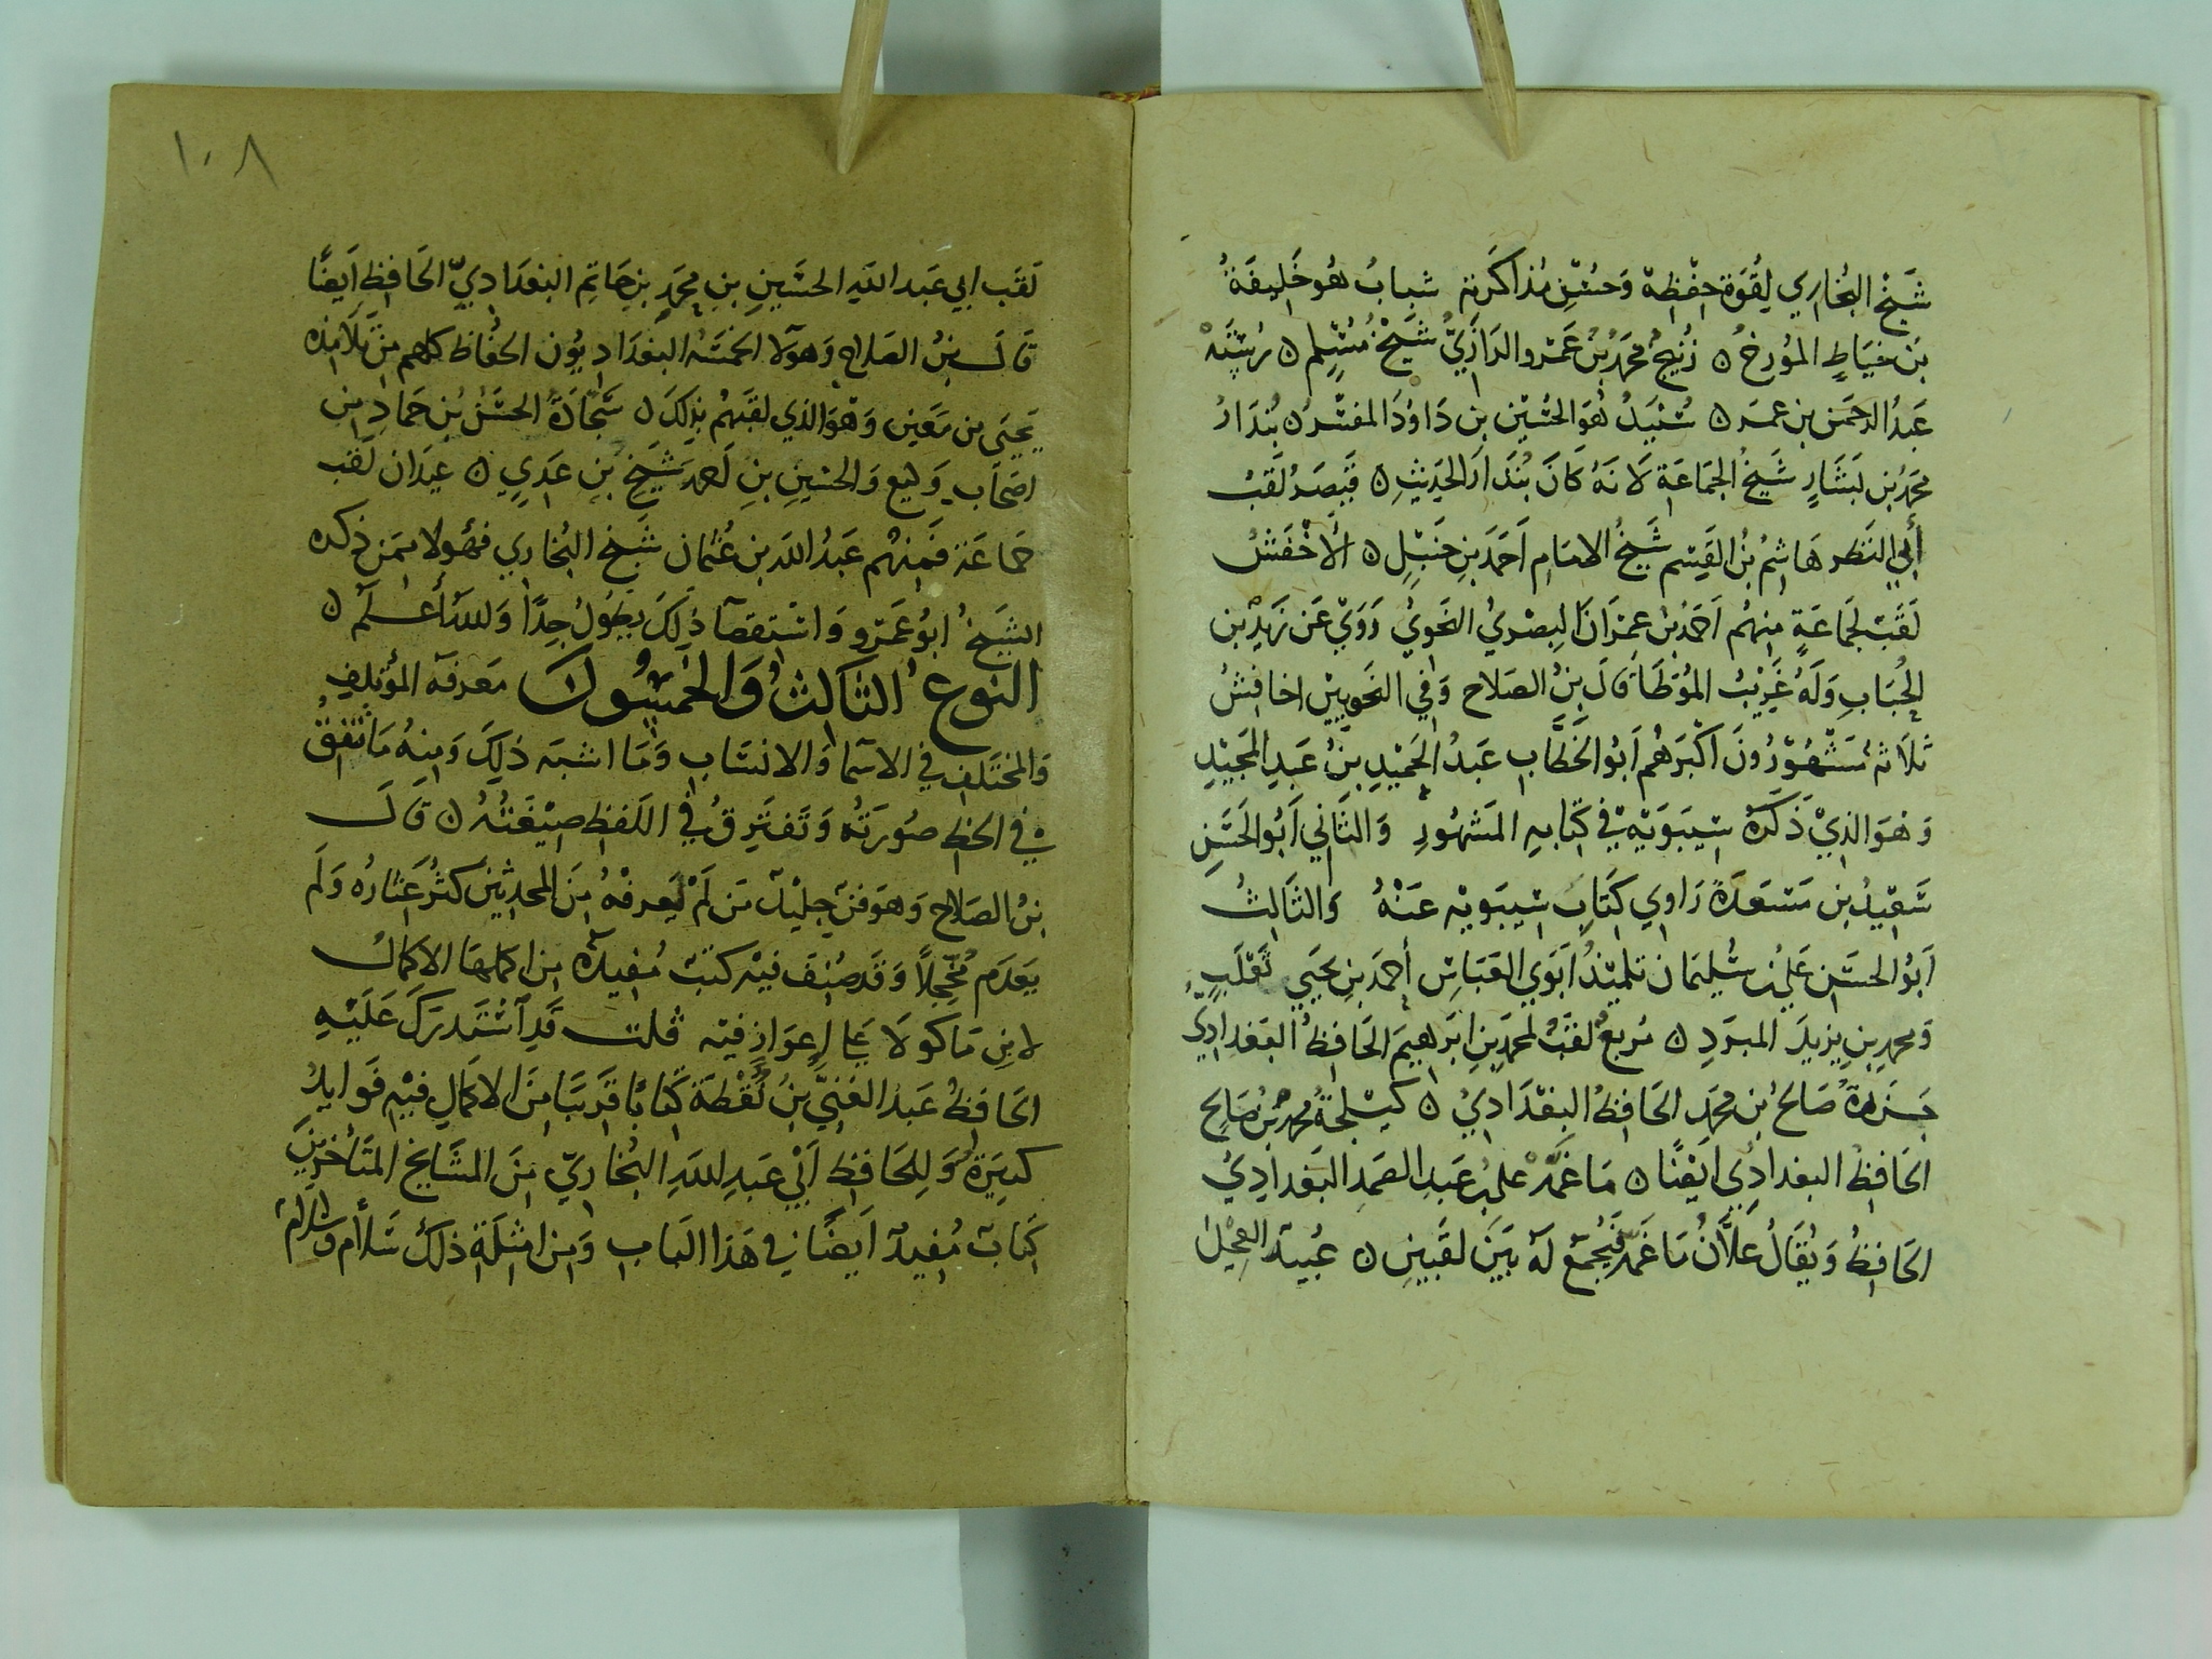 شَيْخ البُخاري لِقُوَة حِفْظِهِ وَحُسْنِ مُذاكَرَته شبابُ هُو خَلِيفَةُ
بن خيَاطٍ المؤرخُ ٥ زُنَيجُ محمدُ بنُ عَمْرو الرَازيُّ شَيْخُ مُسْلِم ٥ رُسْتَهْ
عَبدُ الرحمَن بن عمر ٥ سُنَيدُ هُوَ الحُسَيْن بن دَاوُدَ المفسّر ٥ بُندَارُ
محمدُ بن بَشَارٍ شَيخُ الجمَاعَةِ لانَهُ كَانَ بُندَارَ الحَدِيثِ ٥ قَيْصَرُ لَقَبُ
أَبي النَضر هَاشِمُ بنُ القَسِم شَيخُ الامَامِ اَحمَدَ بنِ حَنبَلٍ ٥ الأَخْفَشُ
لَقَبُ لجمَاعَةٍ مِنهُم اَحمَدُ بنُ عِمرَانَ البصْريُ النَحويُ رَوَى عَن زَيدِ بن
الحُبَابِ وَلَهُ غَرِيْبُ المُوَطَأ قَالَ بنُ الصَلاح وَفي النَحويين اخافشُ
ثلاثه مَشْهُوْرُونَ اَكْبَرهُم اَبُو الخَطَّاب عَبدُ الحَمِيْدِ بنُ عَبدِ المَجيْدِ
وَهوَ الذِيْ ذَكَرَهُ سِيبَوَيْهِ في كِتَابِهِ المَشهُورِ وَالثَاني اَبُو الحَسَنِ
سَعِيدُ بن مَسْعَدَةَ رَاوي كِتَابِ سِيبَوَيْه عَنْهُ وَالثَالِثُ
اَبُو الحسَن عَليُ بن سُليمَان تلميْذُ اَبَوي العَبَاسِ أحمَدَ بنِ يَحيَى ثَعْلَبٍ
وَمحمدِ بنِ يزيدَ المبرَدِ ٥ مُربعٌ لقبُ لمحمدِ بنِ ابرَهِيمَ الحَافِظُ البَغدَاديّ
جَزَرَةُ صَالحُ بن محمَدٍ الحَافِظُ البغدَاديُ ٥ كيْلجَةُ محمدُ بنُ صَالحٍ
الحَافِظُ البغدادي ايْضًا ٥ مَا غَمَّهْ عَليُ بن عَبدِ الصَمَدِ البَغدَادِيُ
الحَافِظُ وَيُقَالُ عَلاَّنُ مَا غَمَهْ فيُجمَع لهَ بَيَن لقَبَينِ ٥ عُبيد العِجْل
١٠٨
لَقَب ابي عَبد اللهِ الحسَينِ بنِ محمَدِ بنِ حَاتِم البغدَاديّ الحَافِظِ اَيضًا
قالَ بنُ الصَلاح وَهؤلا الخمسَه البغدَادِيُون الحُفَاظ كلهم مِن تَلامِذه
يَحيَى بن مَعِين وَهوَ الذي لقبَهُم بذلِكَ ٥ سَجَّادَةُ الحسَنُ بن حمَادٍ مِن
اصحَابِ وَكيع وَالحسَينِ بنِ اَحمدَ شَيخِ بنِ عَدِيٍ ٥ عَبدَان لَقب
جمَاعَة فَمِنهُم عَبدُ اللهِ بن عُثمان شَيخ البُخاري فهؤلا ممَن ذكره
الشَيخُ ابُو عَمرو وَاستِقصَآ ذَلِكَ يطوُلُ جِدًا وَاللهُ أعْلَم ٥
النَوعُ الثَالثُ وَالخمسُون مَعرفَة المؤتلِف
وَالمختلِف في الاسمَا وَالانسَاب وَمَا اشبَه ذلِكَ وَمِنهُ مَا تَتَّفِقُ
في الخط صُورَتُه وَتَفترِقُ في اللَفظِ صِيْغَتُهُ ٥ قَالَ
بنُ الصَلاح وَهوَ فنٌ جلِيْلٌ مَن لَمْ يَعرفْهُ مِنَ المحدِثينَ كَثُر عِثَارُه وَلَم
يَعدَم مُخَجِلاً وَقَد صُنِفَ فيْه كتبٌ مُفِيدَةٌ مِن اكمَلهَا الاكمَالُ
لابنِ مَاكوُلا عَلى اِعوَازٍ فيْه قلت قَدِ اسْتَدرَكَ عَلَيْهِ
الحَافِظُ عَبدُ الغَنِيّ بنُ نُقْطَةَ كتَابًا قَريبًا مِنَ الاكمَالِ فيْهِ فَوايدُ
كثِيرَةُ وَلِلحَافِظِ اَبي عَبدِ اللهِ البُخَاريّ مِنَ المشَايخ المتَأخرينَ
كِتَابٌ مُفِيدٌ اَيضًا في هَذَا البَاب وَمِن امثِلَةِ ذلكَ سَلاَم وسَلاَّم